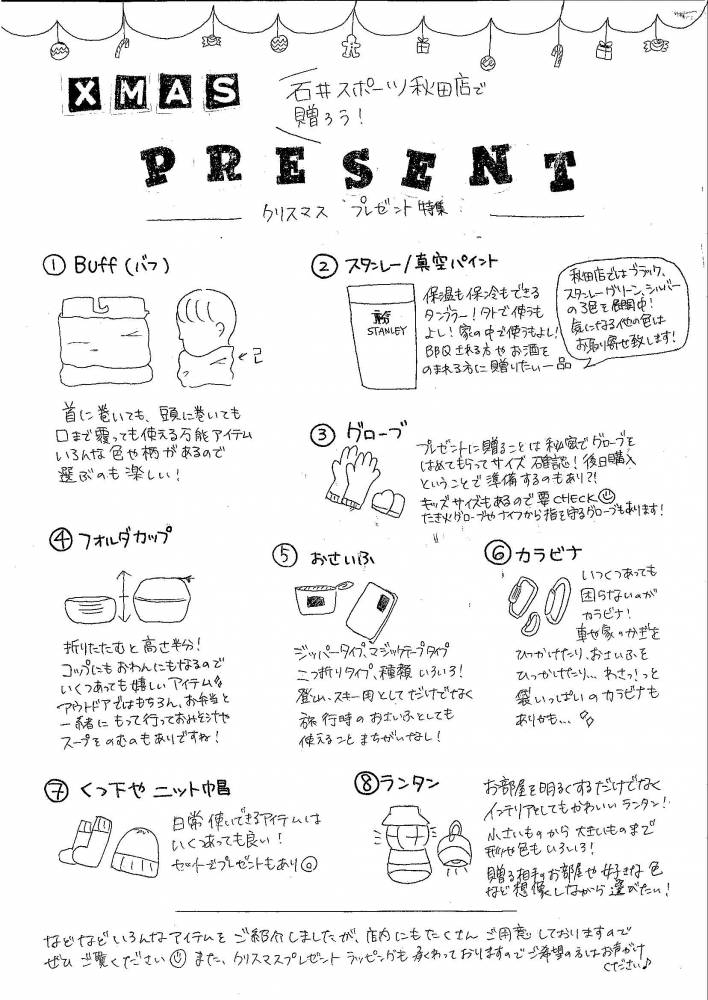 XMAS
石井スポーツ秋田店で
贈ろう!
PRESENT
クリスマス プレゼント特集
① Buff(バフ)
首に巻いても、頭に巻いても
口まで覆っても使える万能アイテム
いろんな色や柄があるので
選ぶのも楽しい!
② スタンレー/真空パイント
STANLEY
保温も保冷もできる
タンブラー!外で使うも
よし!家の中で使うもよし!
BBQされる方やお酒を
のまれる方に贈りたい一品
秋田店ではブラック、
スタンレーグリーン、シルバー
の3色を展開中!
気になる他の色は
お取り寄せ致します!
③ グローブ
プレゼントに贈ることは秘密でグローブを
はめてもらってサイズ確認!後日購入
ということで準備するのもあり?!
キッズサイズもあるので要CHECK
たき火グローブやナイフから指を守るグローブもあります!
④ フォルダカップ
折りたたむと高さ半分!
コップにもおわんにもなるので
いくつあっても嬉しいアイテム
アウトドアではもちろん、お弁当と
一緒にもって行っておみそ汁や
スープをのむのもありですね!
⑤ おさいふ
ジッパータイプ、マジックテープタイプ
二つ折りタイプ、種類いろいろ!
登山、スキー用としてだけでなく
旅行時のおさいふとしても
使えることまちがいなし!
⑥ カラビナ
いくつあっても
困らないのが
カラビナ!
車や家のかぎを
ひっかけたり、おさいふを
ひっかけたり…わさっ!っと
袋いっぱいのカラビナも
ありかも…
⑦ くつ下や ニット帽
日常使いできるアイテムは
いくつあっても良い!
セットでプレゼントもあり◎
⑧ ランタン
お部屋を明るくするだけでなく
インテリアとしてもかわいいランタン!
小さいものから大きいものまで
形や色もいろいろ!
贈る相手のお部屋や好きな色
など想像しながら選びたい!
などなどいろんなアイテムをご紹介しましたが、店内にもたくさんご用意しておりますので
ぜひご覧ください また、クリスマスプレゼントラッピングも承わっておりますのでご希望の方はお声がけ
ください♪